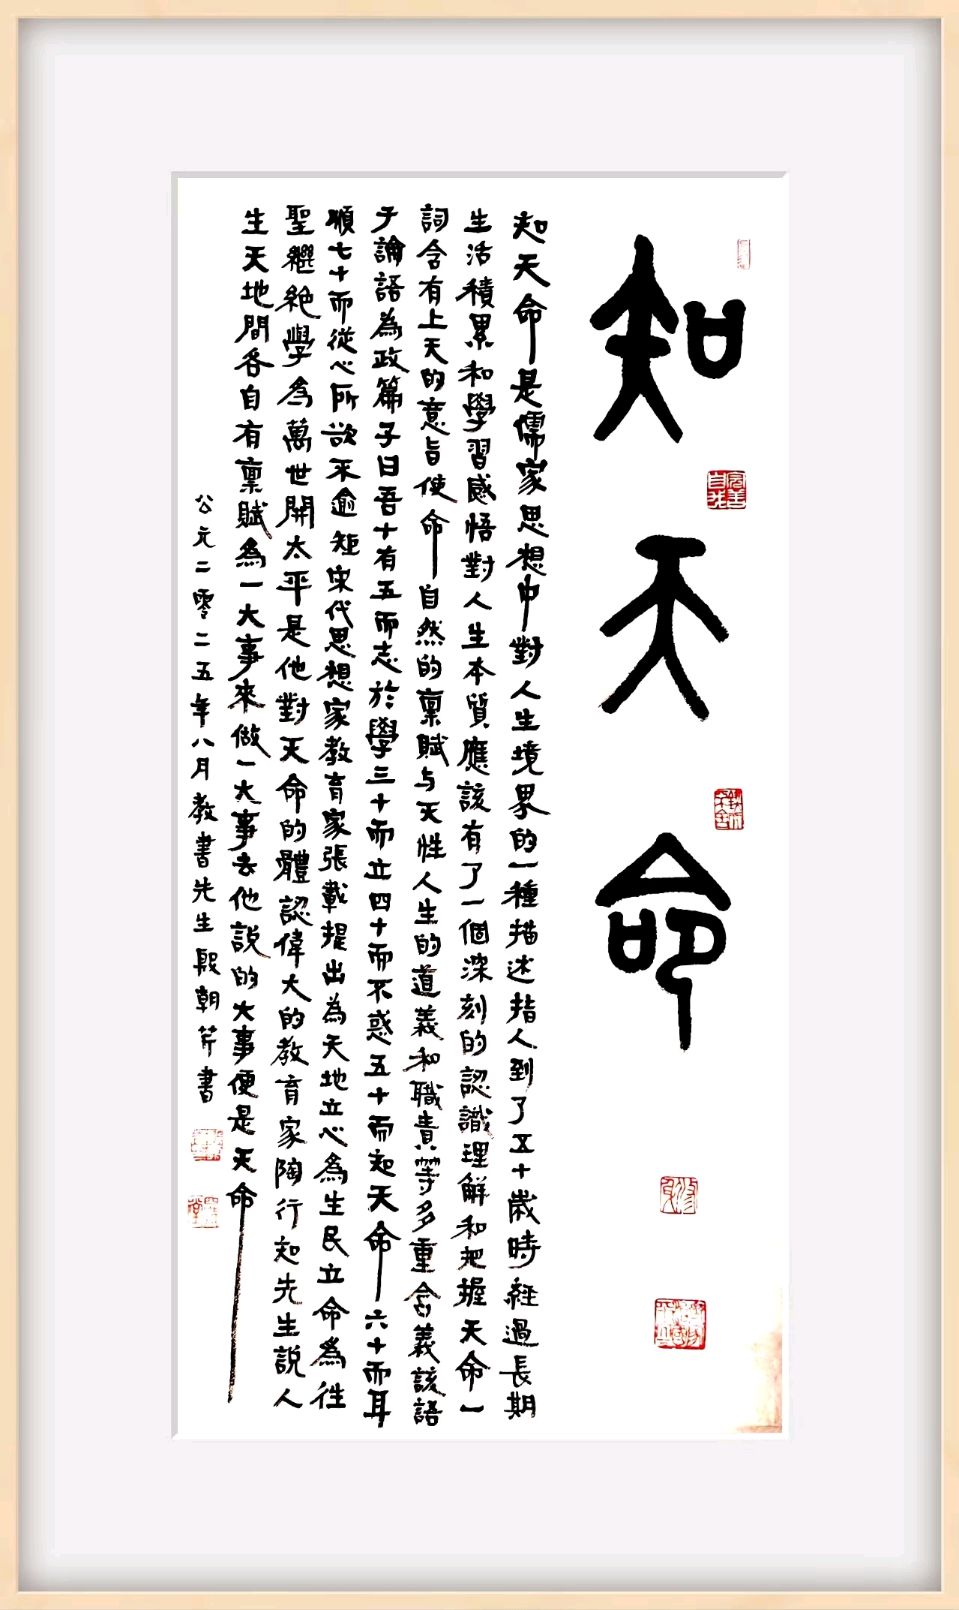 知天命
知天命是儒家思想中對人生境界的一種描述指人到了五十歲時經過長期
生活積累和學習感悟對人生本質應該有了一個深刻的認識理解和把握天命一
詞含有上天的意旨使命自然的稟賦与天性人生的道義和職責等多重含義該語
于論語為政篇子曰吾十有五而志於學三十而立四十而不惑五十而知天命六十而耳
順七十而從心所欲不逾矩宋代思想家教育家張載提出為天地立心為生民立命為往
聖繼絕學為萬世開太平是他對天命的體認偉大的教育家陶行知先生説人
生天地間各自有稟賦為一大事來做一大事去他説的大事便是天命
公元二零二五年八月教書先生殷朝芹書